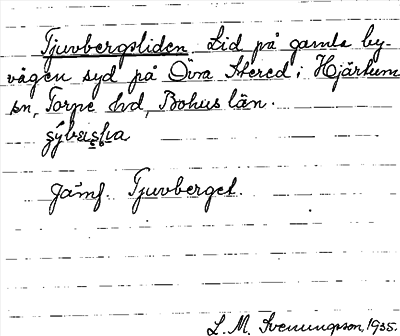 Tjuvbergsliden. Lid på gamla by-
vägen syd på Övra Stered i Hjärtum
sn, Torpe hd, Bohus län.
Jämf. Tjuvberget.
L. M. Svenungsson, 1935.